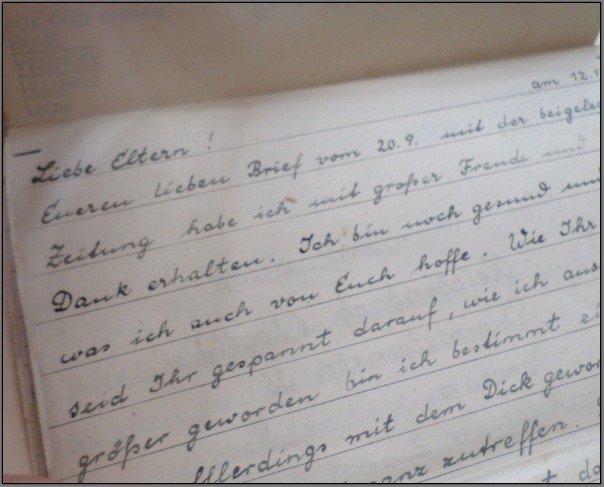 am 12.
Liebe Eltern !
Eueren lieben Brief vom 20.9. mit der
Zeitung habe ich mit großer Freude und
Dank erhalten. Ich bin noch gesund und
was ich auch von Euch hoffe. Wie Ihr
seid Ihr gespannt darauf, wie ich aus
größer geworden bin ich bestimmt
mit dem Dick
ganz zutreffen.